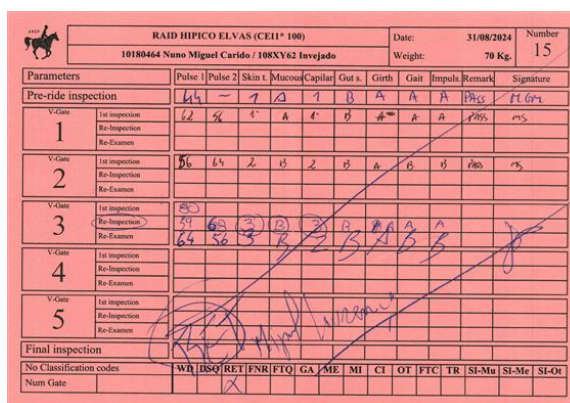 RAID HIPICO ELVAS (CEI1* 100) Date: 31/08/2024 Number
10180464 Nuno Miguel Carido / 108XY62 Invejado Weight: 70 Kg. 15
Parameters Pulse 1 Pulse 2 Skin t. Mucous Capilar Gut s. Girth Gait Impuls. Remark Signature
Pre-ride inspection 44 ~ 1 A 1 B A A A PASS MGM
V-Gate 1 1st inspection 62 56 1- A 1- B A A A PASS MS
Re-Inspection
Re-Examen
V-Gate 2 1st inspection 56 64 2 B 2 B A B A PASS MS
Re-Inspection
Re-Examen
V-Gate 3 1st inspection 80
Re-Inspection 59 68 3 B 3 B A A A
Re-Examen 64 56 3 B 2 B A B B
V-Gate 4 1st inspection
Re-Inspection
Re-Examen
V-Gate 5 1st inspection
Re-Inspection
Re-Examen
Final inspection
No Classification codes WD DSQ RET FNR FTQ GA ME MI CI OT FTC TR SI-Mu SI-Me SI-Ot
Num Gate X